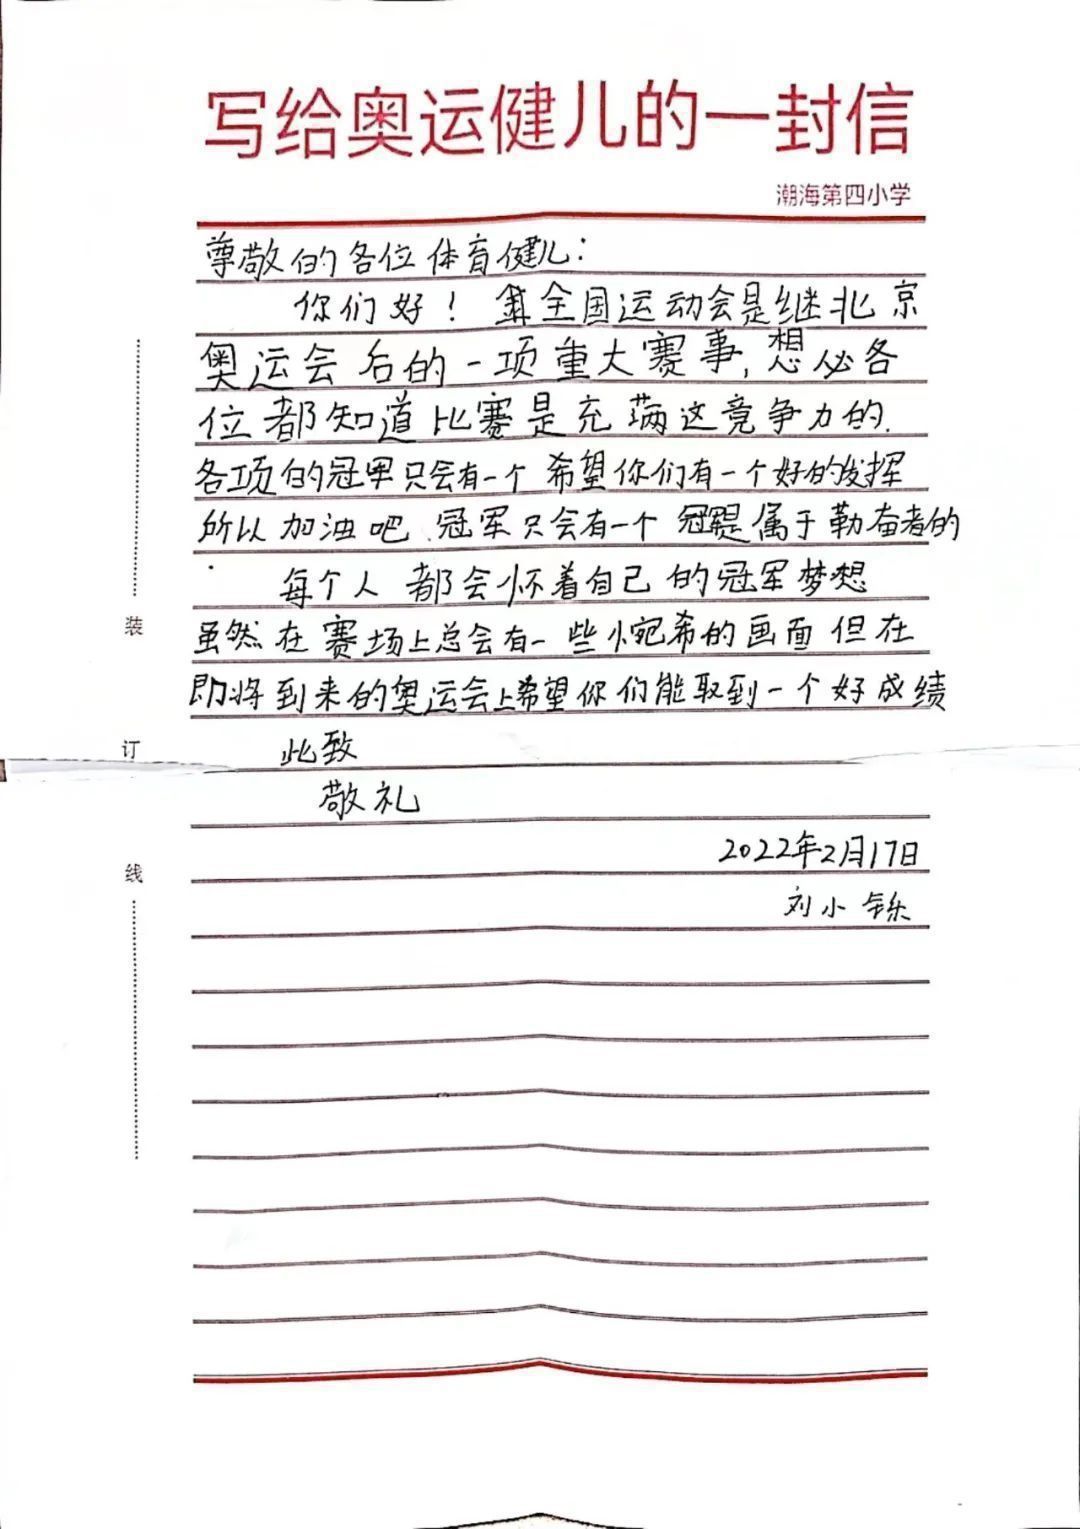 写给奥运健儿的一封信
潮海第四小学
尊敬的各位体育健儿：
你们好！全国运动会是继北京
奥运会后的一项重大赛事，想必各
位都知道比赛是充满这竞争力的.
各项的冠军只会有一个 希望你们有一个好的发挥
所以加油吧、冠军只会有一个 冠是属于勤奋者的
每个人都会怀着自己的冠军梦想
虽然在赛场上总会有一些惋希的画面但在
即将到来的奥运会上希望你们能取到一个好成绩
此致
敬礼
2022年2月17日
刘小铄
装
订
线